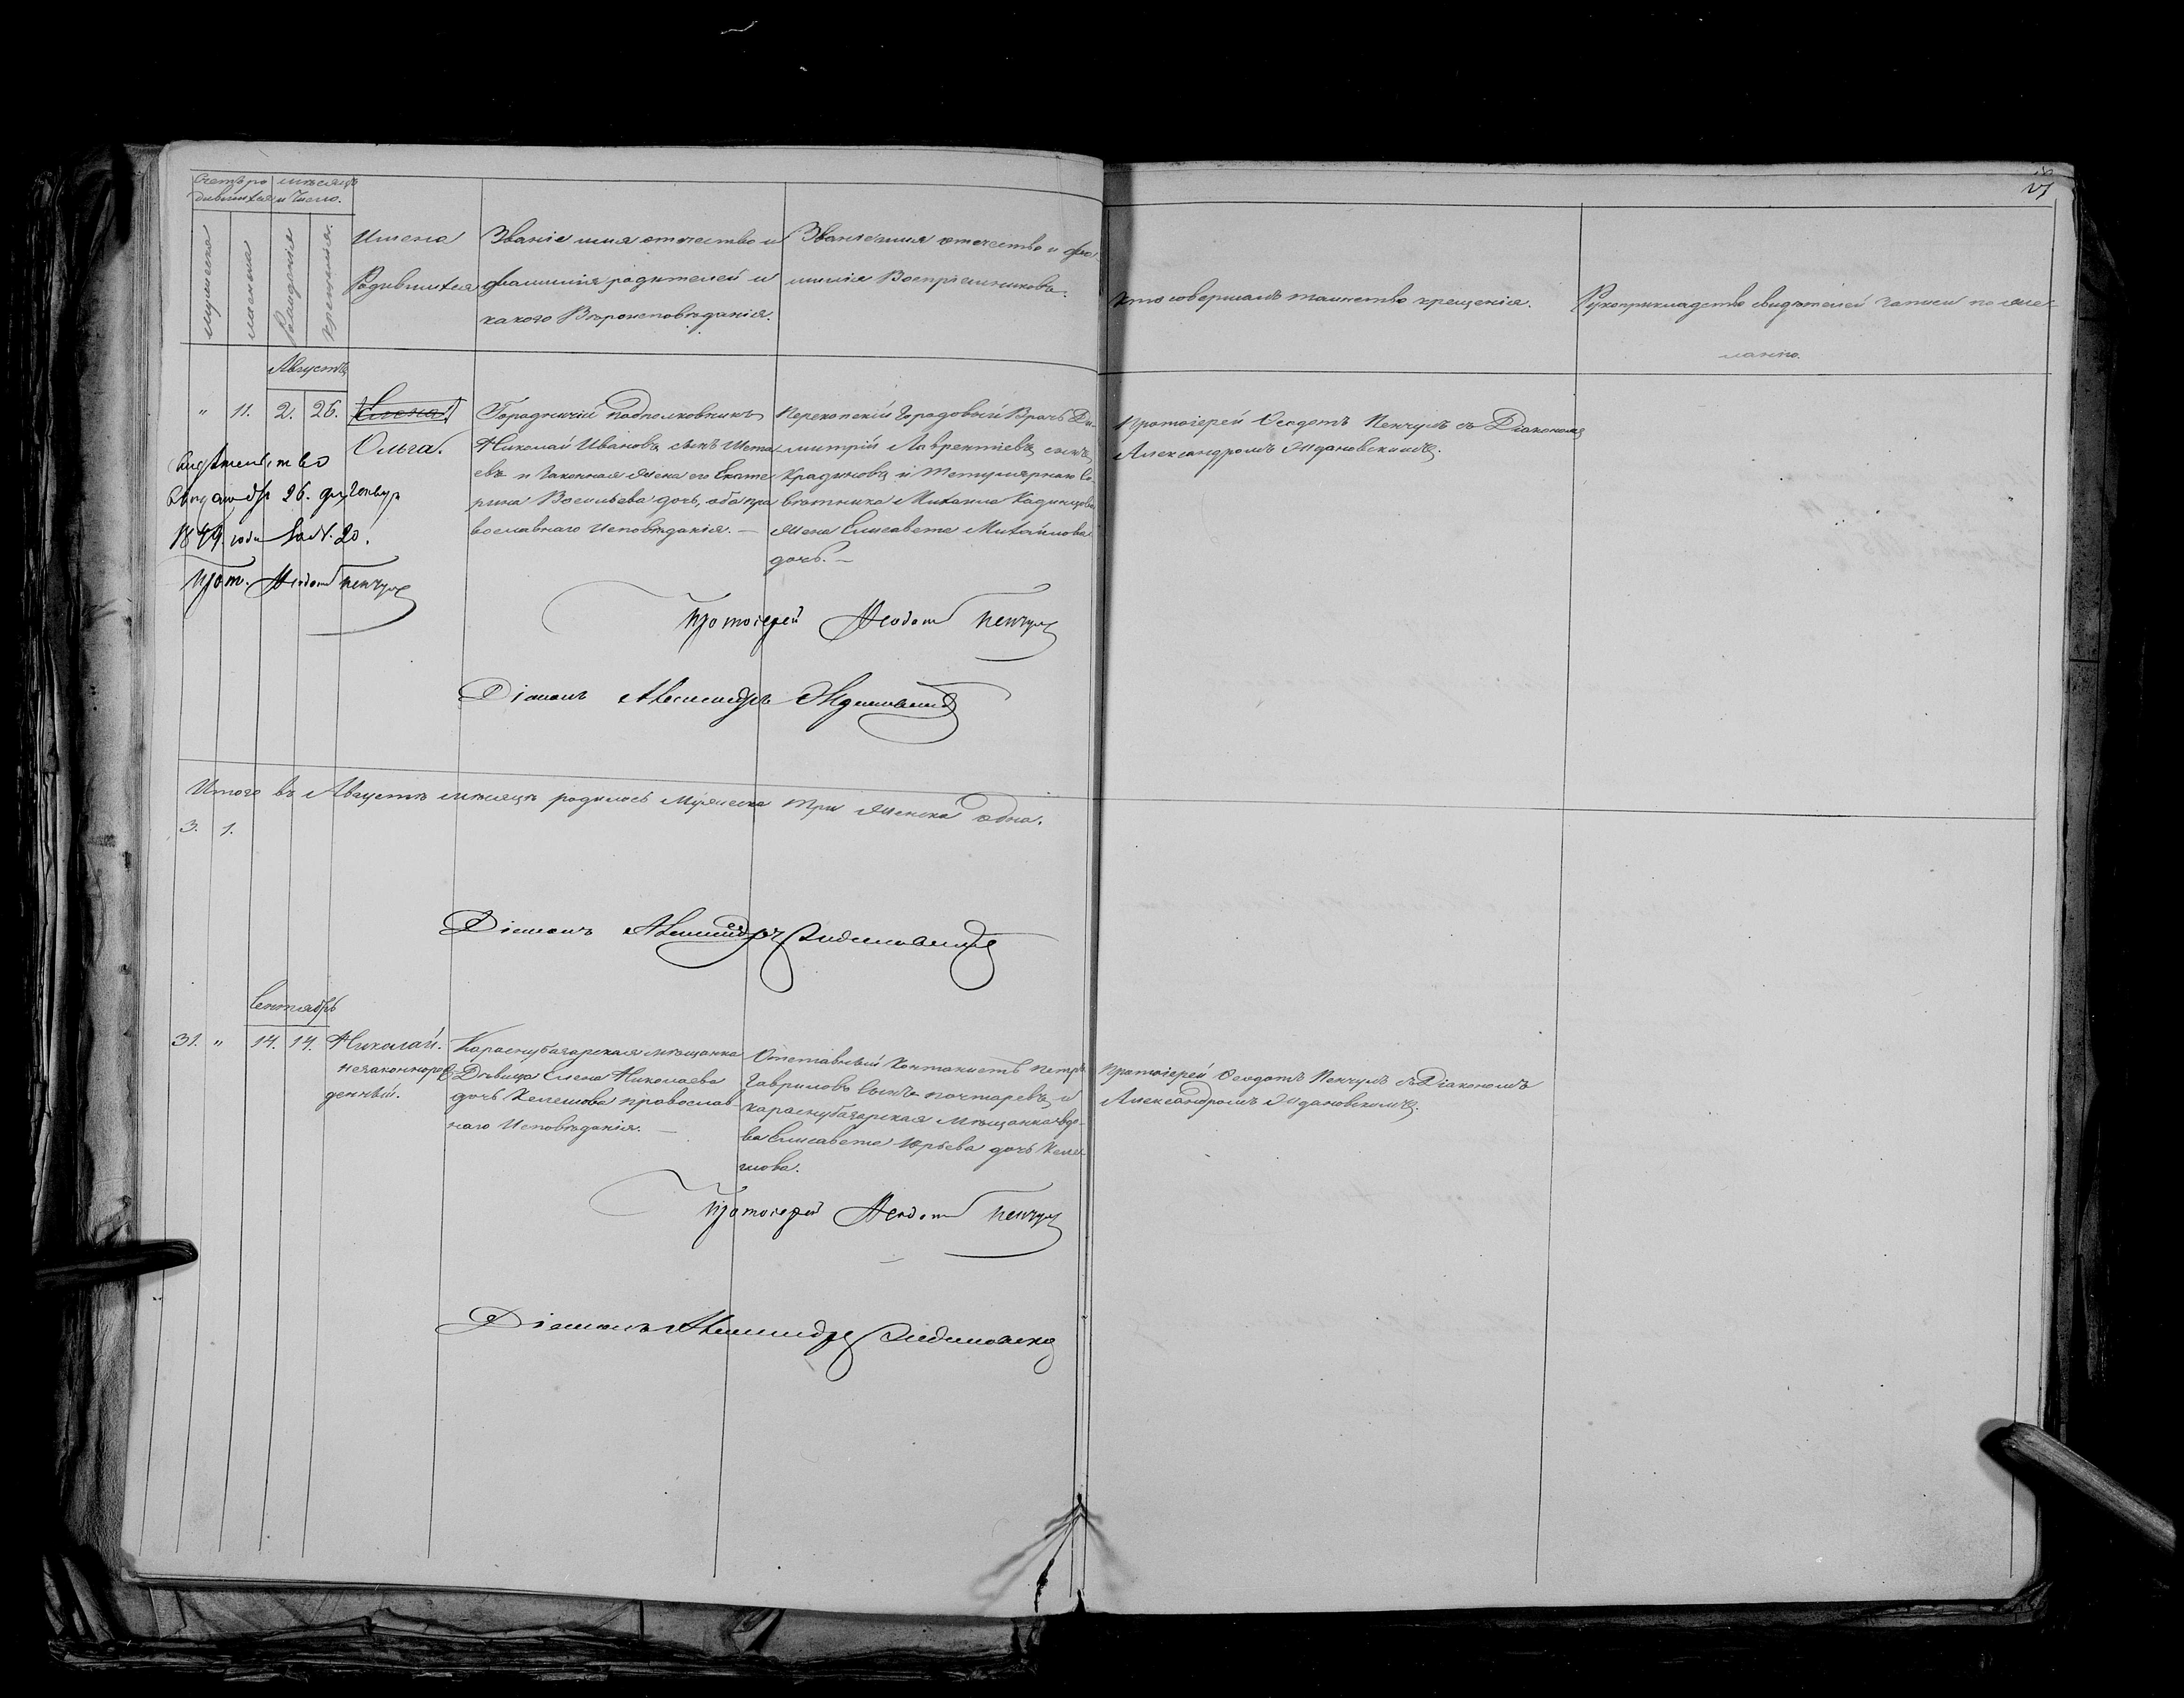 Счетъ ро мѣсяцъ
дившихся и число.
мужеска
женска
Рожденія
крещенія.
Имена
Родившихся
Званіе имя отечество и
фамилія родителей и
какого Вѣроисповѣданія.
Званіе имя отечество и фа
милія Воспріемниковъ.
Кто совершалъ таинство крещенія.
Рукоприкладство свидѣтелей записи по же-
ланію.
Августъ
" 11. 2. 26.
Ольга.
Городничій Подполковникъ
Николай Ивановъ сынъ
евъ и Законная жена его Екате
рина Васильева дочь, оба пра
вославнаго Исповѣданія. —
Перекопскій Городовый Врачъ Ди-
митрій Лаврентіевъ сынъ
и Титулярнаго Со-
вѣтника Михаила
жена Елисавета Михайлова
дочь. —
Протоіерей Ѳеодотъ Пенчулъ съ Діакономъ
Александромъ Ждановскимъ.
Свидѣтельство
26.
1849 года за N. 20.
Прот. Ѳеодотъ Пенчулъ
Протоіерей Ѳеодотъ Пенчулъ
Діаконъ Александръ Ждановскій
Итого въ Августѣ мѣсяцѣ родилось Мужеска три женска одна.
3. 1.
Діаконъ Александръ Ждановскій
Сентябрь
31. " 14. 14.
Николай.
незаконнорож
денный.
Карасубазарская мѣщанка
Дѣвица Елена Николаева
дочь Келешова православ
наго Исповѣданія. —
Отставный Копіистъ Петръ
Гавриловъ Сынъ Почтаревъ и
карасубазарская мѣщанка вдо-
ва Елисавета Юрьева дочь Келе-
шова.
Протоіерей Ѳеодотъ Пенчулъ съ Діакономъ
Александромъ Ждановскимъ.
Протоіерей Ѳеодотъ Пенчулъ
Діаконъ Александръ Ждановскій